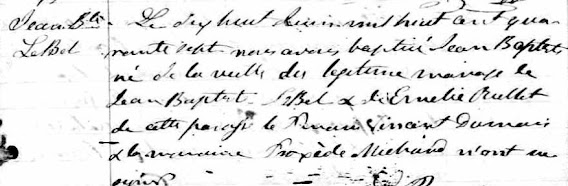 Jean Bte
LeBel
Le dix huit Juin mil huit cent qua-
rante sept nous avons baptisé Jean Baptiste
né de la veille du legitime mariage de
Jean Baptiste LeBel & de Emelie Ouellet
de cette paroisse le Parain Vincent Dumais
& la maraine Praxède Michaud n'ont su
signer